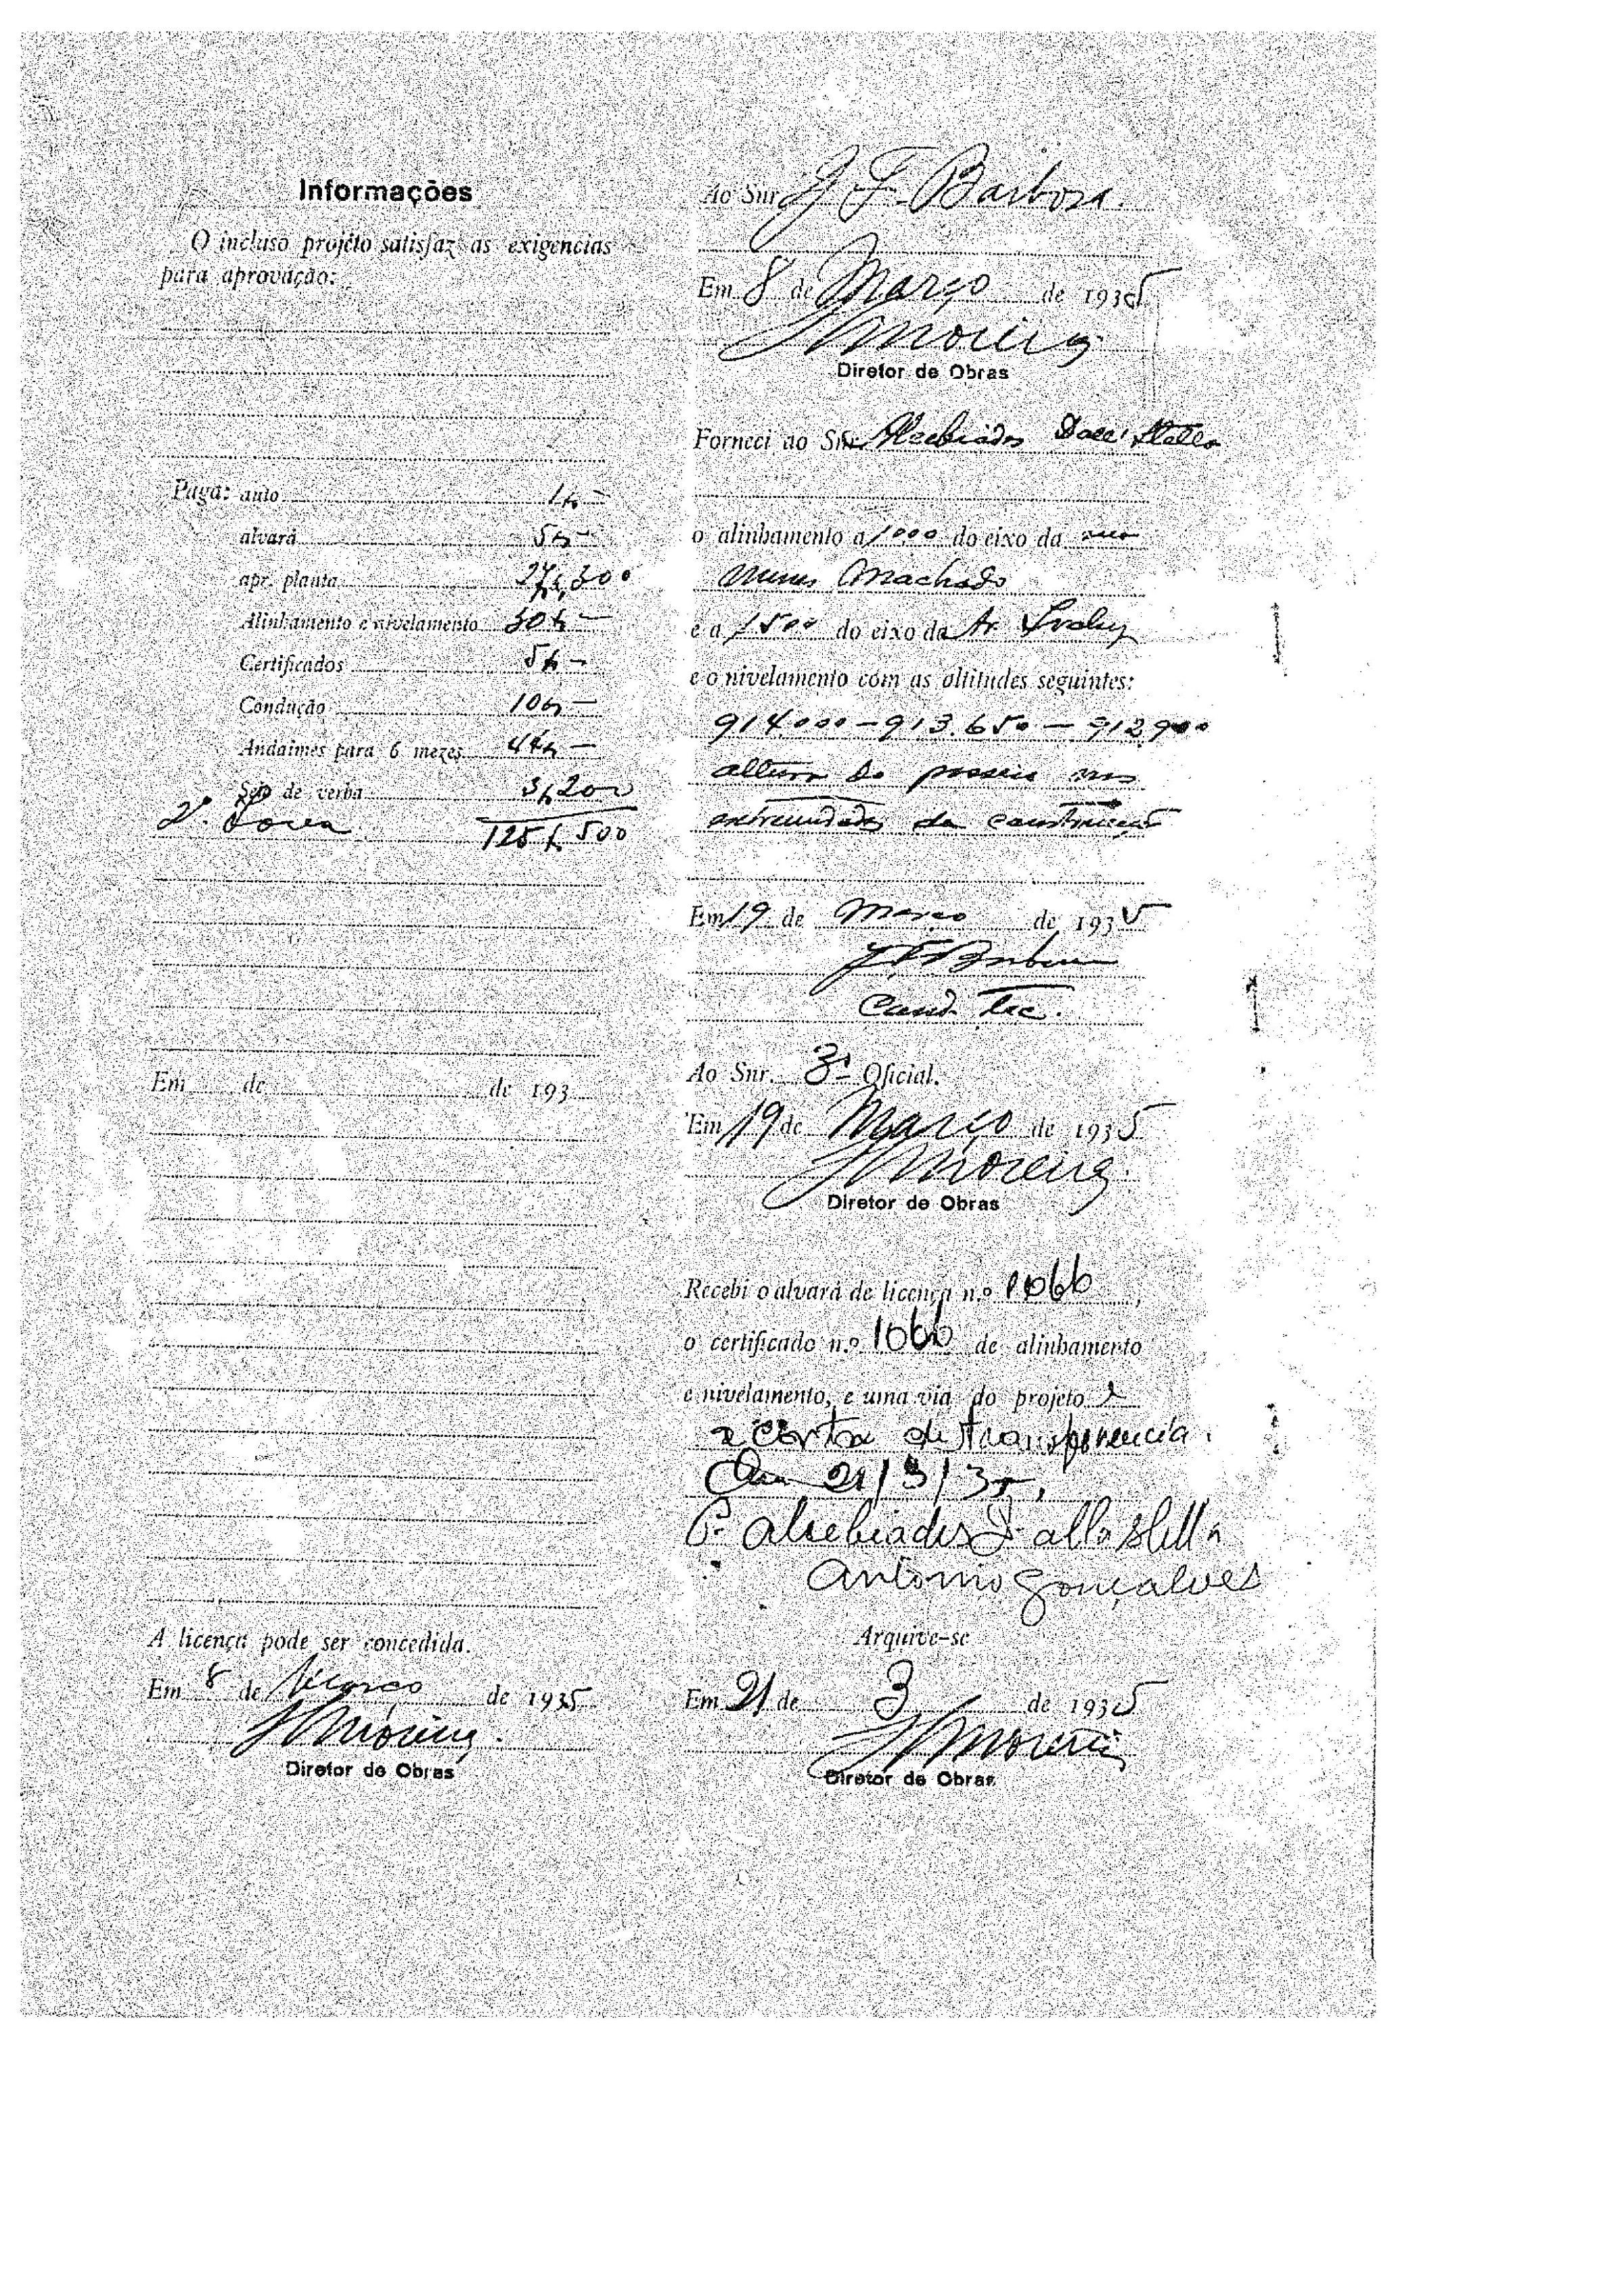 Informações
O incluso projéto satisfaz as exigencias
para aprovação:
Paga: auto 1$-
alvará 5$-
apr. planta 27$300
Alinhamento e nivelamento 30$-
Certificados 5$-
Condução 10$-
Andaimes para 6 mezes 44$-
Selo de verba 3$200
125$500
Em de de 193
A licença pode ser concedida.
Em 8 de Março de 1935
Moreira
Diretor de Obras
Ao Snr J F Barbosa.
Em 8 de Março de 1935
Moreira
Diretor de Obras
Forneci ao Snr. Alcebiades Dalla Stella
o alinhamento a 1000 do eixo da rua
Nunes Machado
e a 1500 do eixo da Av.
e o nivelamento com as altitudes seguintes:
914.000 - 913.650 - 912.900
altura do passeio nas
extremidades da construcção
Em 19 de Março de 1935
J F Barbosa
Cond. Tec.
Ao Snr. 3º Oficial.
Em 19 de Março de 1935
Moreira
Diretor de Obras
Recebi o alvará de licença n.º 1066,
o certificado n.º 1066 de alinhamento
e nivelamento, e uma via do projeto e
a carta de transferencia.
21/3/35,
P. Alcebiades Dalla Stella
Antonio Gonçalves
Arquive-se
Em 21 de 3 de 1935
Moreira
Diretor de Obras